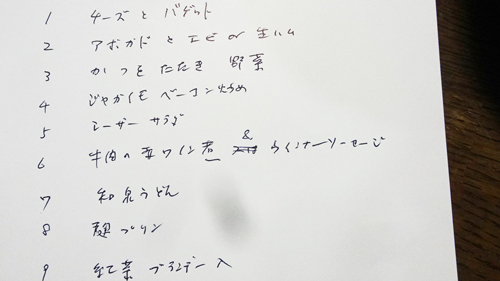 1 チーズと バゲット
2 アボガドと エビ or 生ハム
3 かつをたたき 野菜
4 じゃがイモ ベーコン炒め
5 シーザー サラダ
6 牛肉の赤ワイン煮 & ウインナーソーセージ
7 和泉うどん
8 麹プリン
9 紅茶 ブランデー入